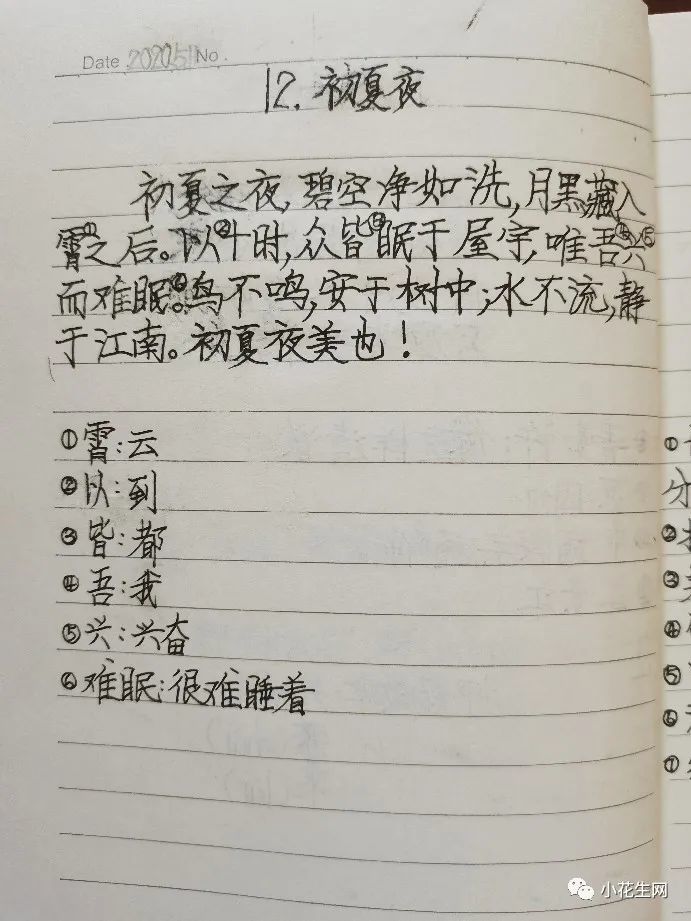 Date 2020.5.1 No.
12. 初夏夜
初夏之夜,碧空净如洗,月黑藏入
霄①之后。以②十时,众皆③眠于屋宇,唯吾④兴⑤
而难眠⑥。鸟不鸣,安于树中;水不流,静
于江南。初夏夜美也!
①霄:云
②以:到
③皆:都
④吾:我
⑤兴:兴奋
⑥难眠:很难睡着
小花生网